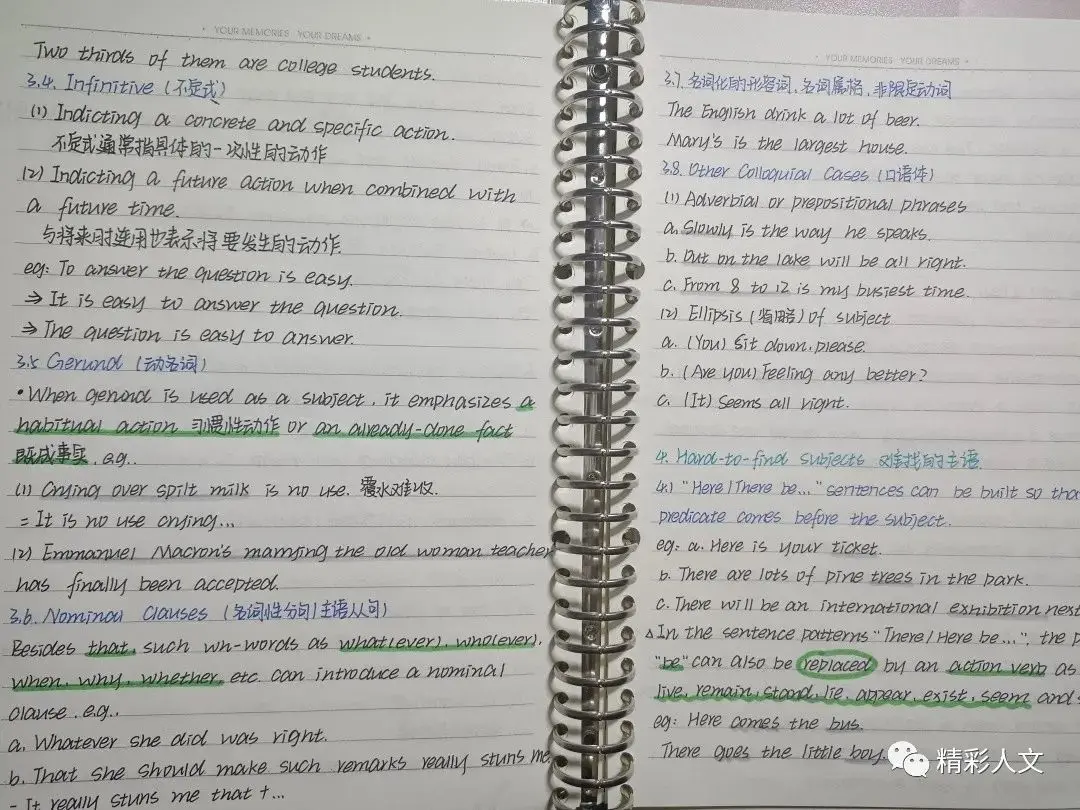 YOUR MEMORIES YOUR DREAMS
Two thirds of them are college students.
3.4. Infinitive (不定式)
(1) Indicting a concrete and specific action.
不定式通常指具体的一次性的动作
(2) Indicting a future action when combined with
a future time.
与将来时连用也表示将要发生的动作.
eg: To answer the question is easy.
⇒ It is easy to answer the question.
⇒ The question is easy to answer.
3.5 Gerund (动名词)
•When gerund is used as a subject, it emphasizes a
habitual action 习惯性动作 or an already-done fact
既成事实, e.g..
(1) Crying over spilt milk is no use. 覆水难收.
= It is no use crying...
(2) Emmanuel Macron's marrying the old woman teacher
has finally been accepted.
3.6. Nominal Clauses (名词性分句/主语从句)
Besides that, such wh-words as what(ever), who(ever),
when, why, whether, etc. can introduce a nominal
clause, e.g.,
a. Whatever she did was right.
b. That she should make such remarks really stuns me.
- It really stuns me that +...
YOUR MEMORIES YOUR DREAMS
3.7. 名词化的形容词, 名词属格, 非限定动词
The English drink a lot of beer.
Mary's is the largest house.
3.8. Other Colloquial Cases (口语体)
(1) Adverbial or prepositional phrases
a. Slowly is the way he speaks.
b. Out on the lake will be all right.
c. From 8 to 12 is my busiest time.
(2) Ellipsis (省略) of subject
a. (You) Sit down, please.
b. (Are you) Feeling any better?
c. (It) Seems all right.
4. Hard-to-find subjects 难找的主语.
4.1 "Here/There be..." sentences can be built so
predicate comes before the subject.
eg: a. Here is your ticket.
b. There are lots of pine trees in the park.
c. There will be an international exhibition next
△In the sentence patterns "There/Here be...", the
"be" can also be replaced by an action verb as
live, remain, stand, lie, appear, exist, seem and
eg: Here comes the bus.
There goes the little boy.
精彩人文